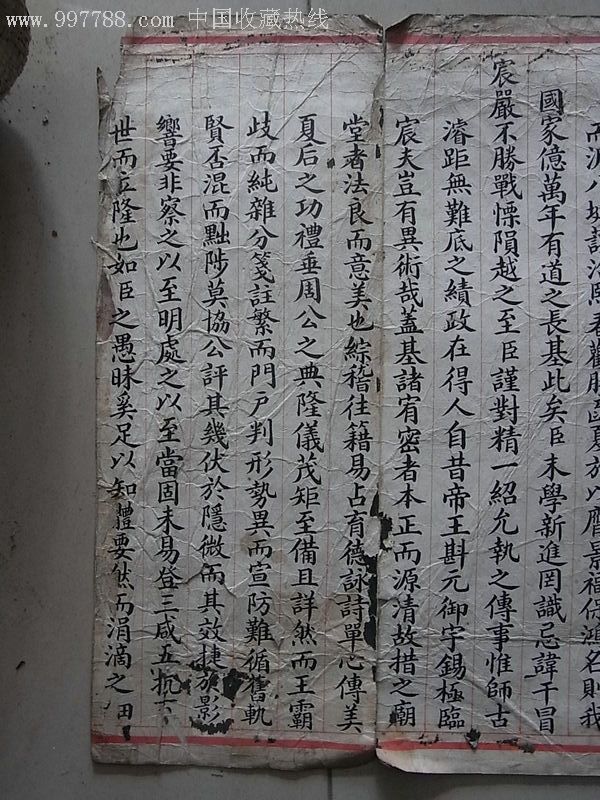 www.997788.com 中国收藏热线
而
國家億萬年有道之長基此矣臣末學新進罔識忌諱干冒
宸嚴不勝戰慄隕越之至臣謹對精一紹允執之傳事惟師古
濬距無難底之績政在得人自昔帝王斟元御宇錫極臨
宸夫豈有異術哉蓋基諸宥密者本正而源清故措之廟
堂者法良而意美也綜稽往籍易占育德詠詩單心傳美
夏后之功禮垂周公之典隆儀茂矩至備且詳然而王霸
歧而純雜分箋註繁而門戶判形勢異而宣防難循舊軌
賢否混而黜陟莫協公評其幾伏於隱微而其效捷於影
響要非察之以至明處之以至當固未易登三咸五
世而立隆也如臣之愚昧奚足以知體要然而涓滴之